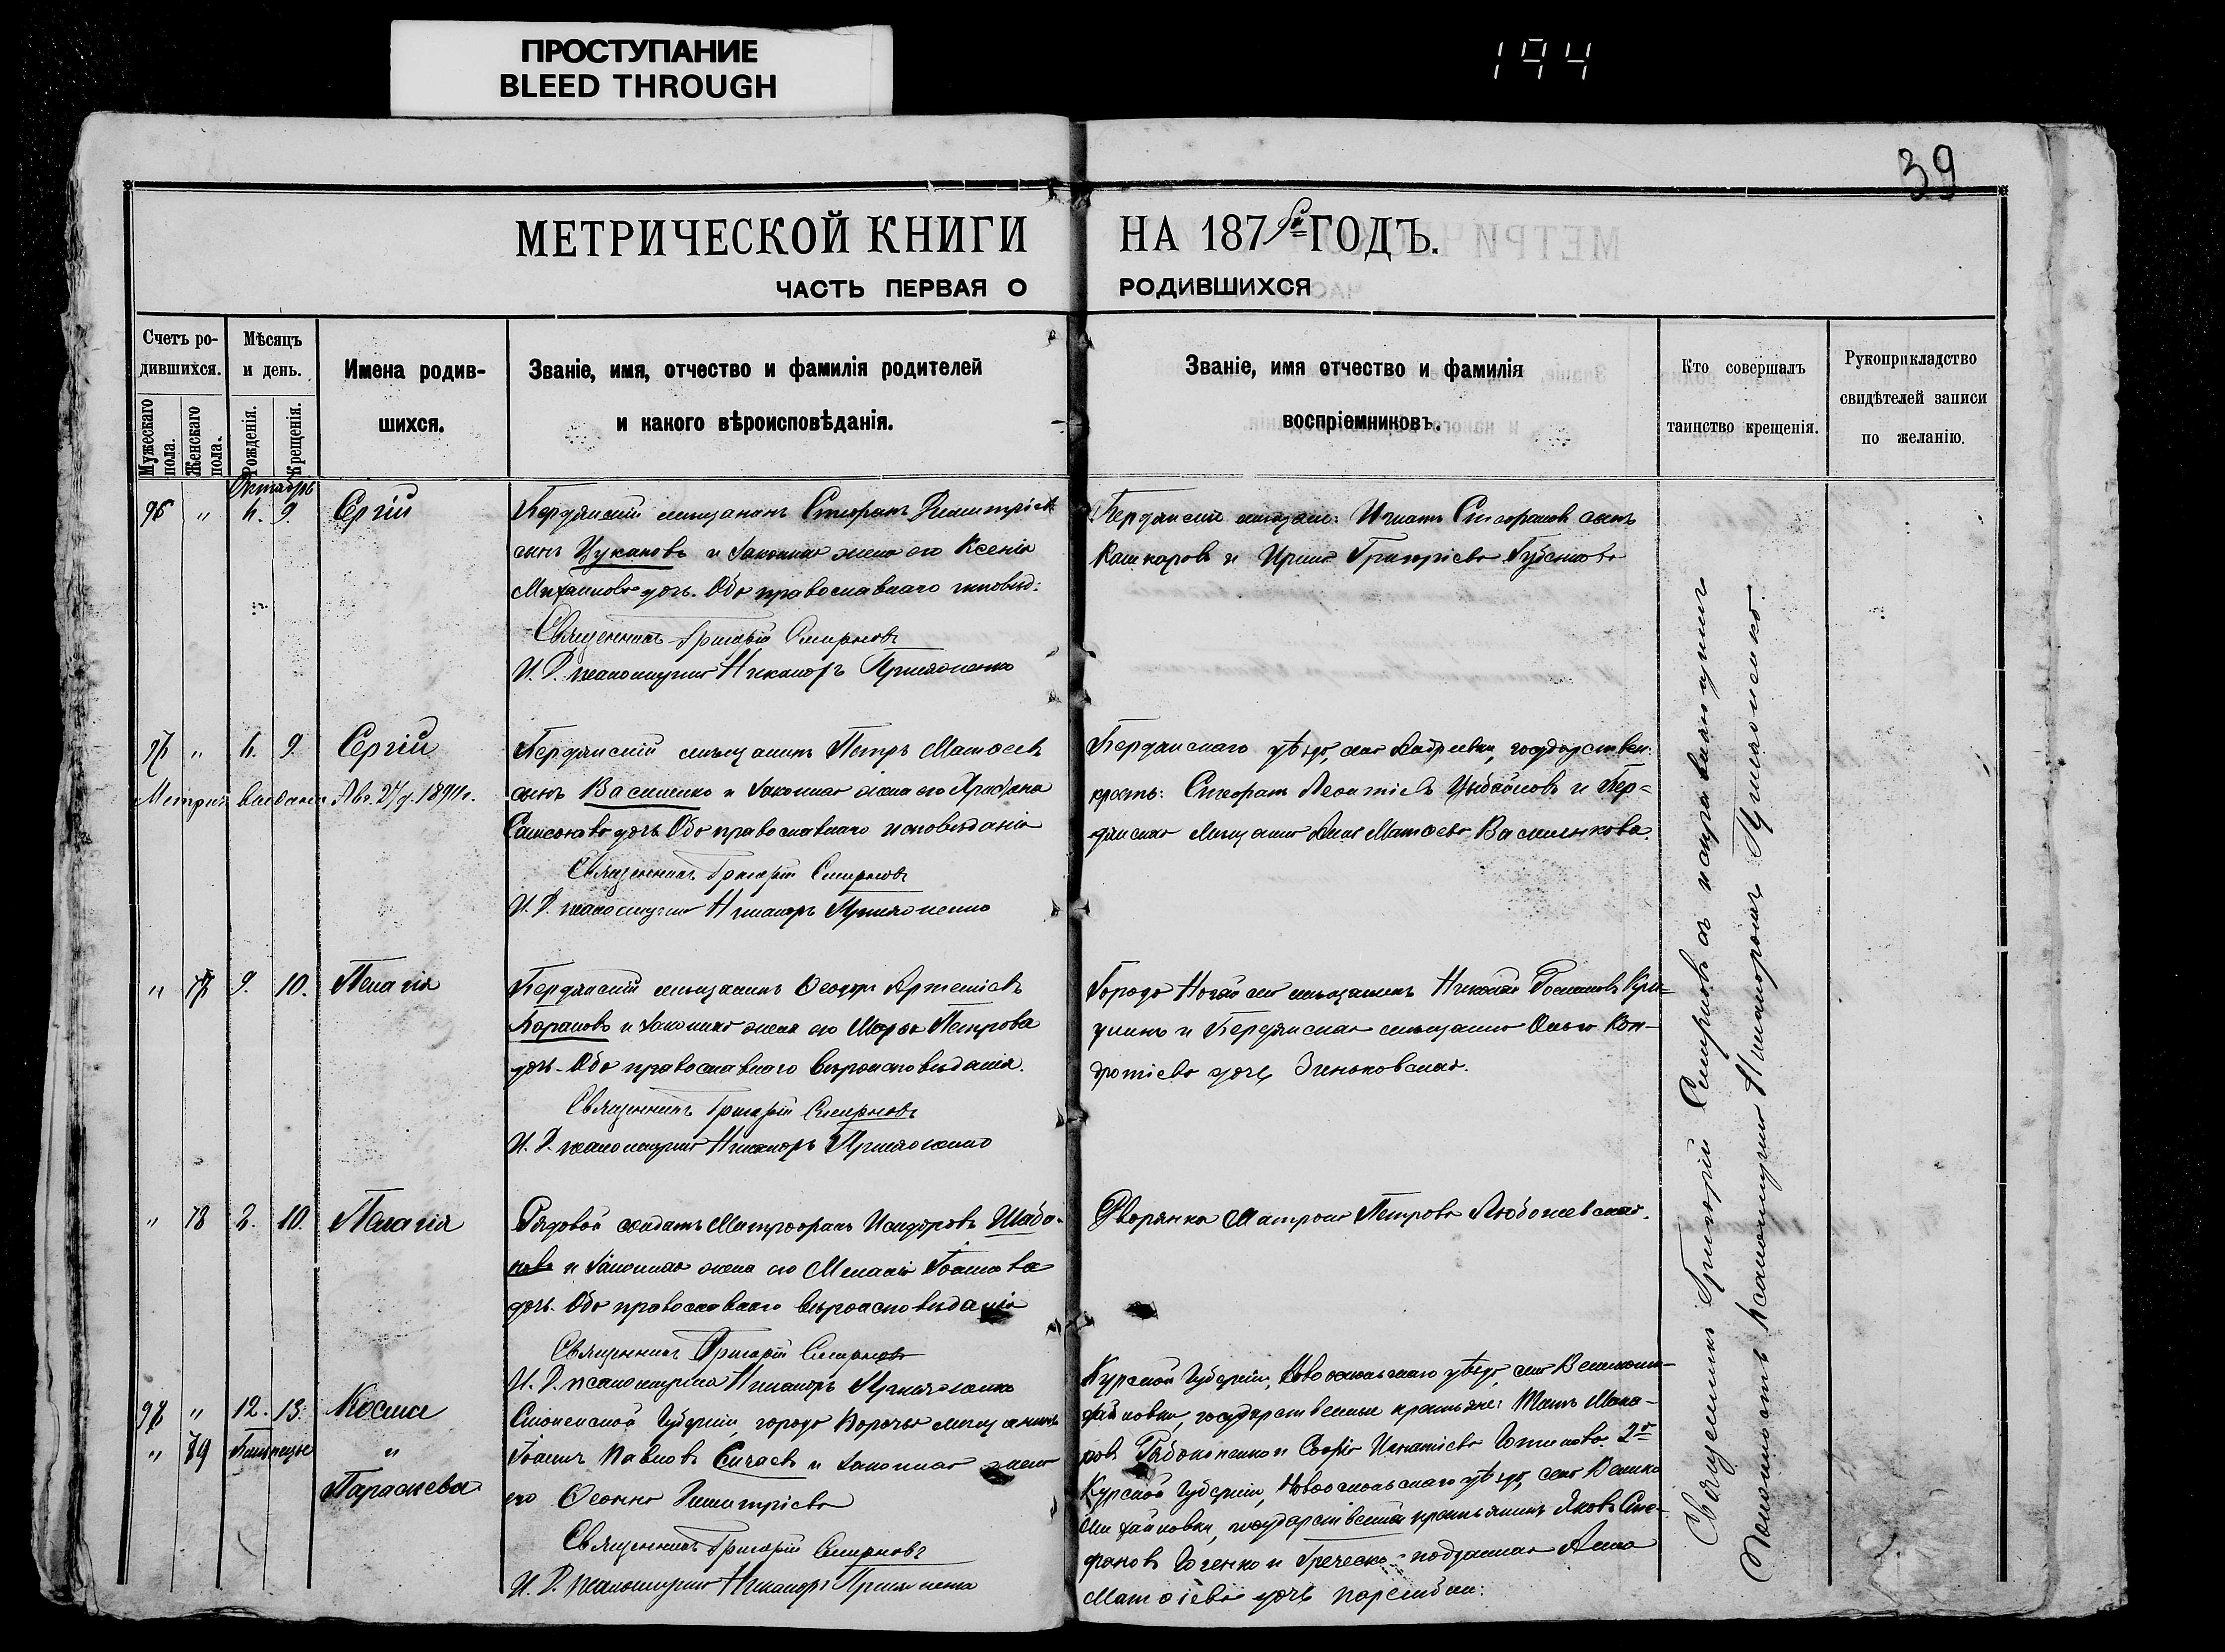 ПРОСТУПАНИЕ
BLEED THROUGH
194
39
МЕТРИЧЕСКОЙ КНИГИ НА 187 ГОДЪ.
ЧАСТЬ ПЕРВАЯ О РОДИВШИХСЯ
Счетъ ро-
дившихся.
Мужескаго пола.
Женскаго пола.
Мѣсяцъ
и день.
Рожденія.
Крещенія.
Имена родив-
шихся.
Званіе, имя, отчество и фамилія родителей
и какого вѣроисповѣданія.
Званіе, имя отчество и фамилія
воспріемниковъ.
Кто совершалъ
таинство крещенія.
Рукоприкладство
свидѣтелей записи
по желанію.
Октябрь
96 " 9. Сергій
Бердянскій мѣщанинъ Стефанъ Димитріевъ
сынъ Цукановъ и законная жена его Ксенія
Михаилова дочь. Оба православнаго исповѣд:
Священникъ Григорій Смирновъ
И. Д. псаломщика Никаноръ
Бердянскій мѣщан: Игнатъ Стефановъ сынъ
Кашкаровъ и Ирина Григоріева Губенкова
97 " 9 Сергій
Метрич. выдана Авг. 27 д. 1891 г.
Бердянскій мѣщанинъ Петръ Матѳеевъ
сынъ Василенко и законная жена его
Самсонова дочь Оба православнаго исповѣданія
Священникъ Григорій Смирновъ
И. Д. псаломщика Никаноръ
Бердянскаго уѣзда, села Андреевки, государствен:
крестъ: Стефанъ Леонтіевъ и Бер=
дянская мѣщанка Анна Матѳеева Василенкова.
" 77 9. 10. Пелагія
Бердянскій мѣщанинъ Ѳеодоръ Артеміевъ
Барановъ и законная жена его Марѳа Петрова
дочь. Оба православнаго вѣроисповѣданія.
Священникъ Григорій Смирновъ
И. Д. псаломщика Никаноръ
Города Ногайска мѣщанинъ Николай
и Бердянская мѣщанка Ольга Кон-
дратіева дочь Зиньковская.
" 78 2. 10. Пелагія
Рядовой солдатъ Митрофанъ Исидоровъ
и законная жена его Меланія Іоаннова
дочь. Оба православнаго вѣроисповѣданія
Священникъ Григорій Смирновъ
И. Д. псаломщика Никаноръ
Дворянка Матрона Петрова
" 12. 13. Косма
" 79 Близнецы "
Параскева
губерніи, города Корочы мѣщанинъ
Іоаннъ Павловъ Сычевъ и законная жена
его Ѳеонна Димитріева
Священникъ Григорій Смирновъ
И. Д. псаломщика Никаноръ
Курской губерніи, Новооскольскаго уѣзда, села Великоми-
хайловки, государственные крестьяне: Мака-
ровъ Рябоконенко и Софія Игнатіева 2го
Курской губерніи, Новооскольскаго уѣзда, села Велико
Михайловки, государственный крестьянинъ Яковъ Сте-
фановъ и Греческо-подданная Анна
Матѳіева дочь
Священникъ Григорій Смирновъ съ исправляющимъ
должность псаломщика Никаноромъ